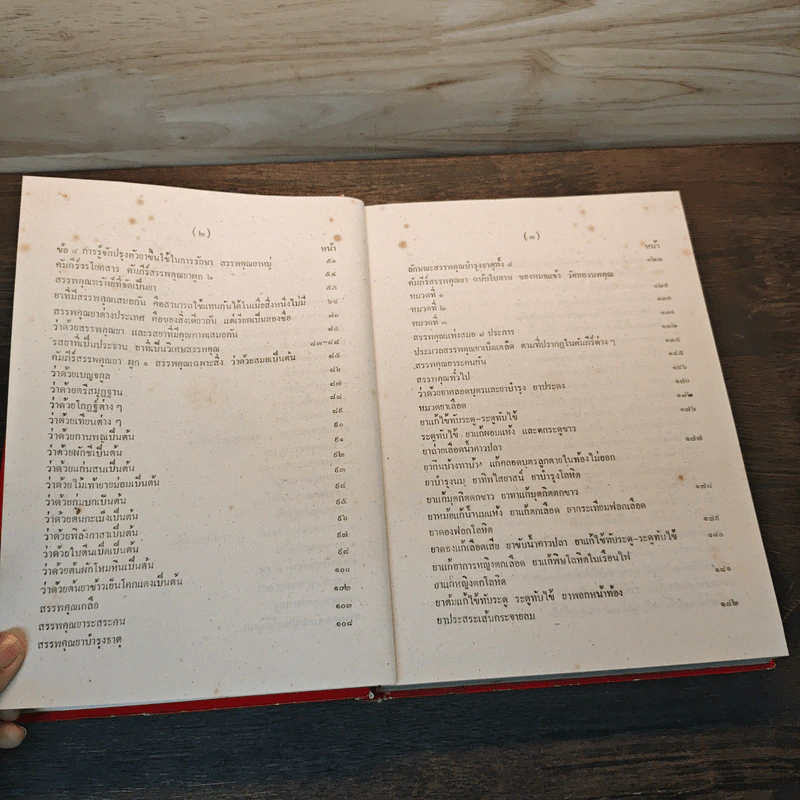 (๒)
หน้า
ข้อ ๔ การรู้จักปรุงตัวยาขึ้นใช้ในการรักษา สรรพคุณยาหมู่ ๕๑
คัมภีร์วรโยคสาร คัมภีร์สรรพคุณยาผูก ๒ ๕๔
สรรพคุณทรัพย์ที่จัดเป็นถา ๕๕
ยาที่มีสรรพคุณเสมอกัน คือสามารถใช้แทนกันได้ในเมื่อสิ่งหนึ่งไม่มี ๖๙
สรรพคุณยาต่างประเทศ คือของสิ่งเดียวกัน แต่เรียกเป็นสองชื่อ ๗๐
ว่าด้วยสรรพคุณยา และรสยาที่มีคุณภาพเสมอกัน ๗๕
รสยาที่เป็นประธาน ยาที่เป็นวิเศษสรรพคุณ ๘๓-๘๔
คัมภีร์สรรพคุณยา ผูก ๑ สรรพคุณเฉพาะสิ่ง ว่าด้วยสมอเป็นต้น ๘๖
ว่าด้วยเบญจกูล ๘๗
ว่าด้วยตรีสมุฏฐาน ๘๘
ว่าด้วยโกฏฐ์ต่าง ๆ ๘๙
ว่าด้วยเทียนต่าง ๆ ๙๐
ว่าด้วยกานพลูเป็นต้น ๙๑
ว่าด้วยผักชีเป็นต้น ๙๒
ว่าด้วยแก่นสนเป็นต้น ๙๓
ว่าด้วยไม้เท้ายายม่อมเป็นต้น ๙๔
ว่าด้วยกุ่มบกเป็นต้น ๙๕
ว่าด้วยต้นกะเม็งเป็นต้น ๙๖
ว่าด้วยพิลังกาสาเป็นต้น ๙๗
ว่าด้วยใบตีนเป็ดเป็นต้น ๙๘
ว่าด้วยต้นผักโหมหินเป็นต้น ๑๐๐
ว่าด้วยต้นยาข้าวเย็นโคกแดงเป็นต้น ๑๐๒
สรรพคุณเกลือ ๑๐๓
สรรพคุณยาระสระคน ๑๐๔
สรรพคุณยาบำรุงธาตุ
(๓)
หน้า
ลักษณะสรรพคุณบำรุงธาตุทั้ง ๔
คัมภีร์สรรพคุณยา ฉบับใบลาน ของหมอแจ้ว วัดทองนพคุณ
หมวดที่ ๑
หมวดที่ ๒
หมวดที่ ๓
สรรพคุณแห่งสมอ ๗ ประการ
ประมวลสรรพคุณยาเบ็ดเตล็ด ตามที่ปรากฏในคัมภีร์ต่าง ๆ
สรรพคุณยาระคนกัน
สรรพคุณทั่วไป
ว่าด้วยยาคลอดบุตรและยาบำรุง ยาประดง
หมวดยาเลือด
ยาแก้ไข้ทับระดู-ระดูทับไข้
ระดูทับไข้ ยาแก้ผอมแห้ง และตกระดูขาว
ยาถ่ายเลือดน้ำคาวปลา ๑๗๗
ยากินบ้างทาบ้าง แก้คลอดบุตรลูกตายในท้องไม่ออก
ยาบำรุงนม ยาทิพไสยาสน์ ยาบำรุงโลหิต
ยาแก้มุตกิตตกขาว ยาทาแก้มุตกิตตกขาว ๑๗๘
ยาหม้อแก้น้ำนมแห้ง ยาแก้ตกเลือด ยากระเทียมฟอกเลือด
ยาดองฟอกโลหิต ๑๗๙
ยาดองแก้เลือดเสีย ยาขับน้ำคาวปลา ยาแก้ไข้ทับระดู-ระดูทับไข้ ๑๘๐
ยาแก้อาการหญิงตกเลือด ยาแก้พิษโลหิตในเรือนไฟ
ยาแก้หญิงตกโลหิต ๑๘๑
ยาต้มแก้ไข้ทับระดู ระดูทับไข้ ยาพอกหน้าท้อง
ยาประสระเส้นกระจายลม ๑๘๒